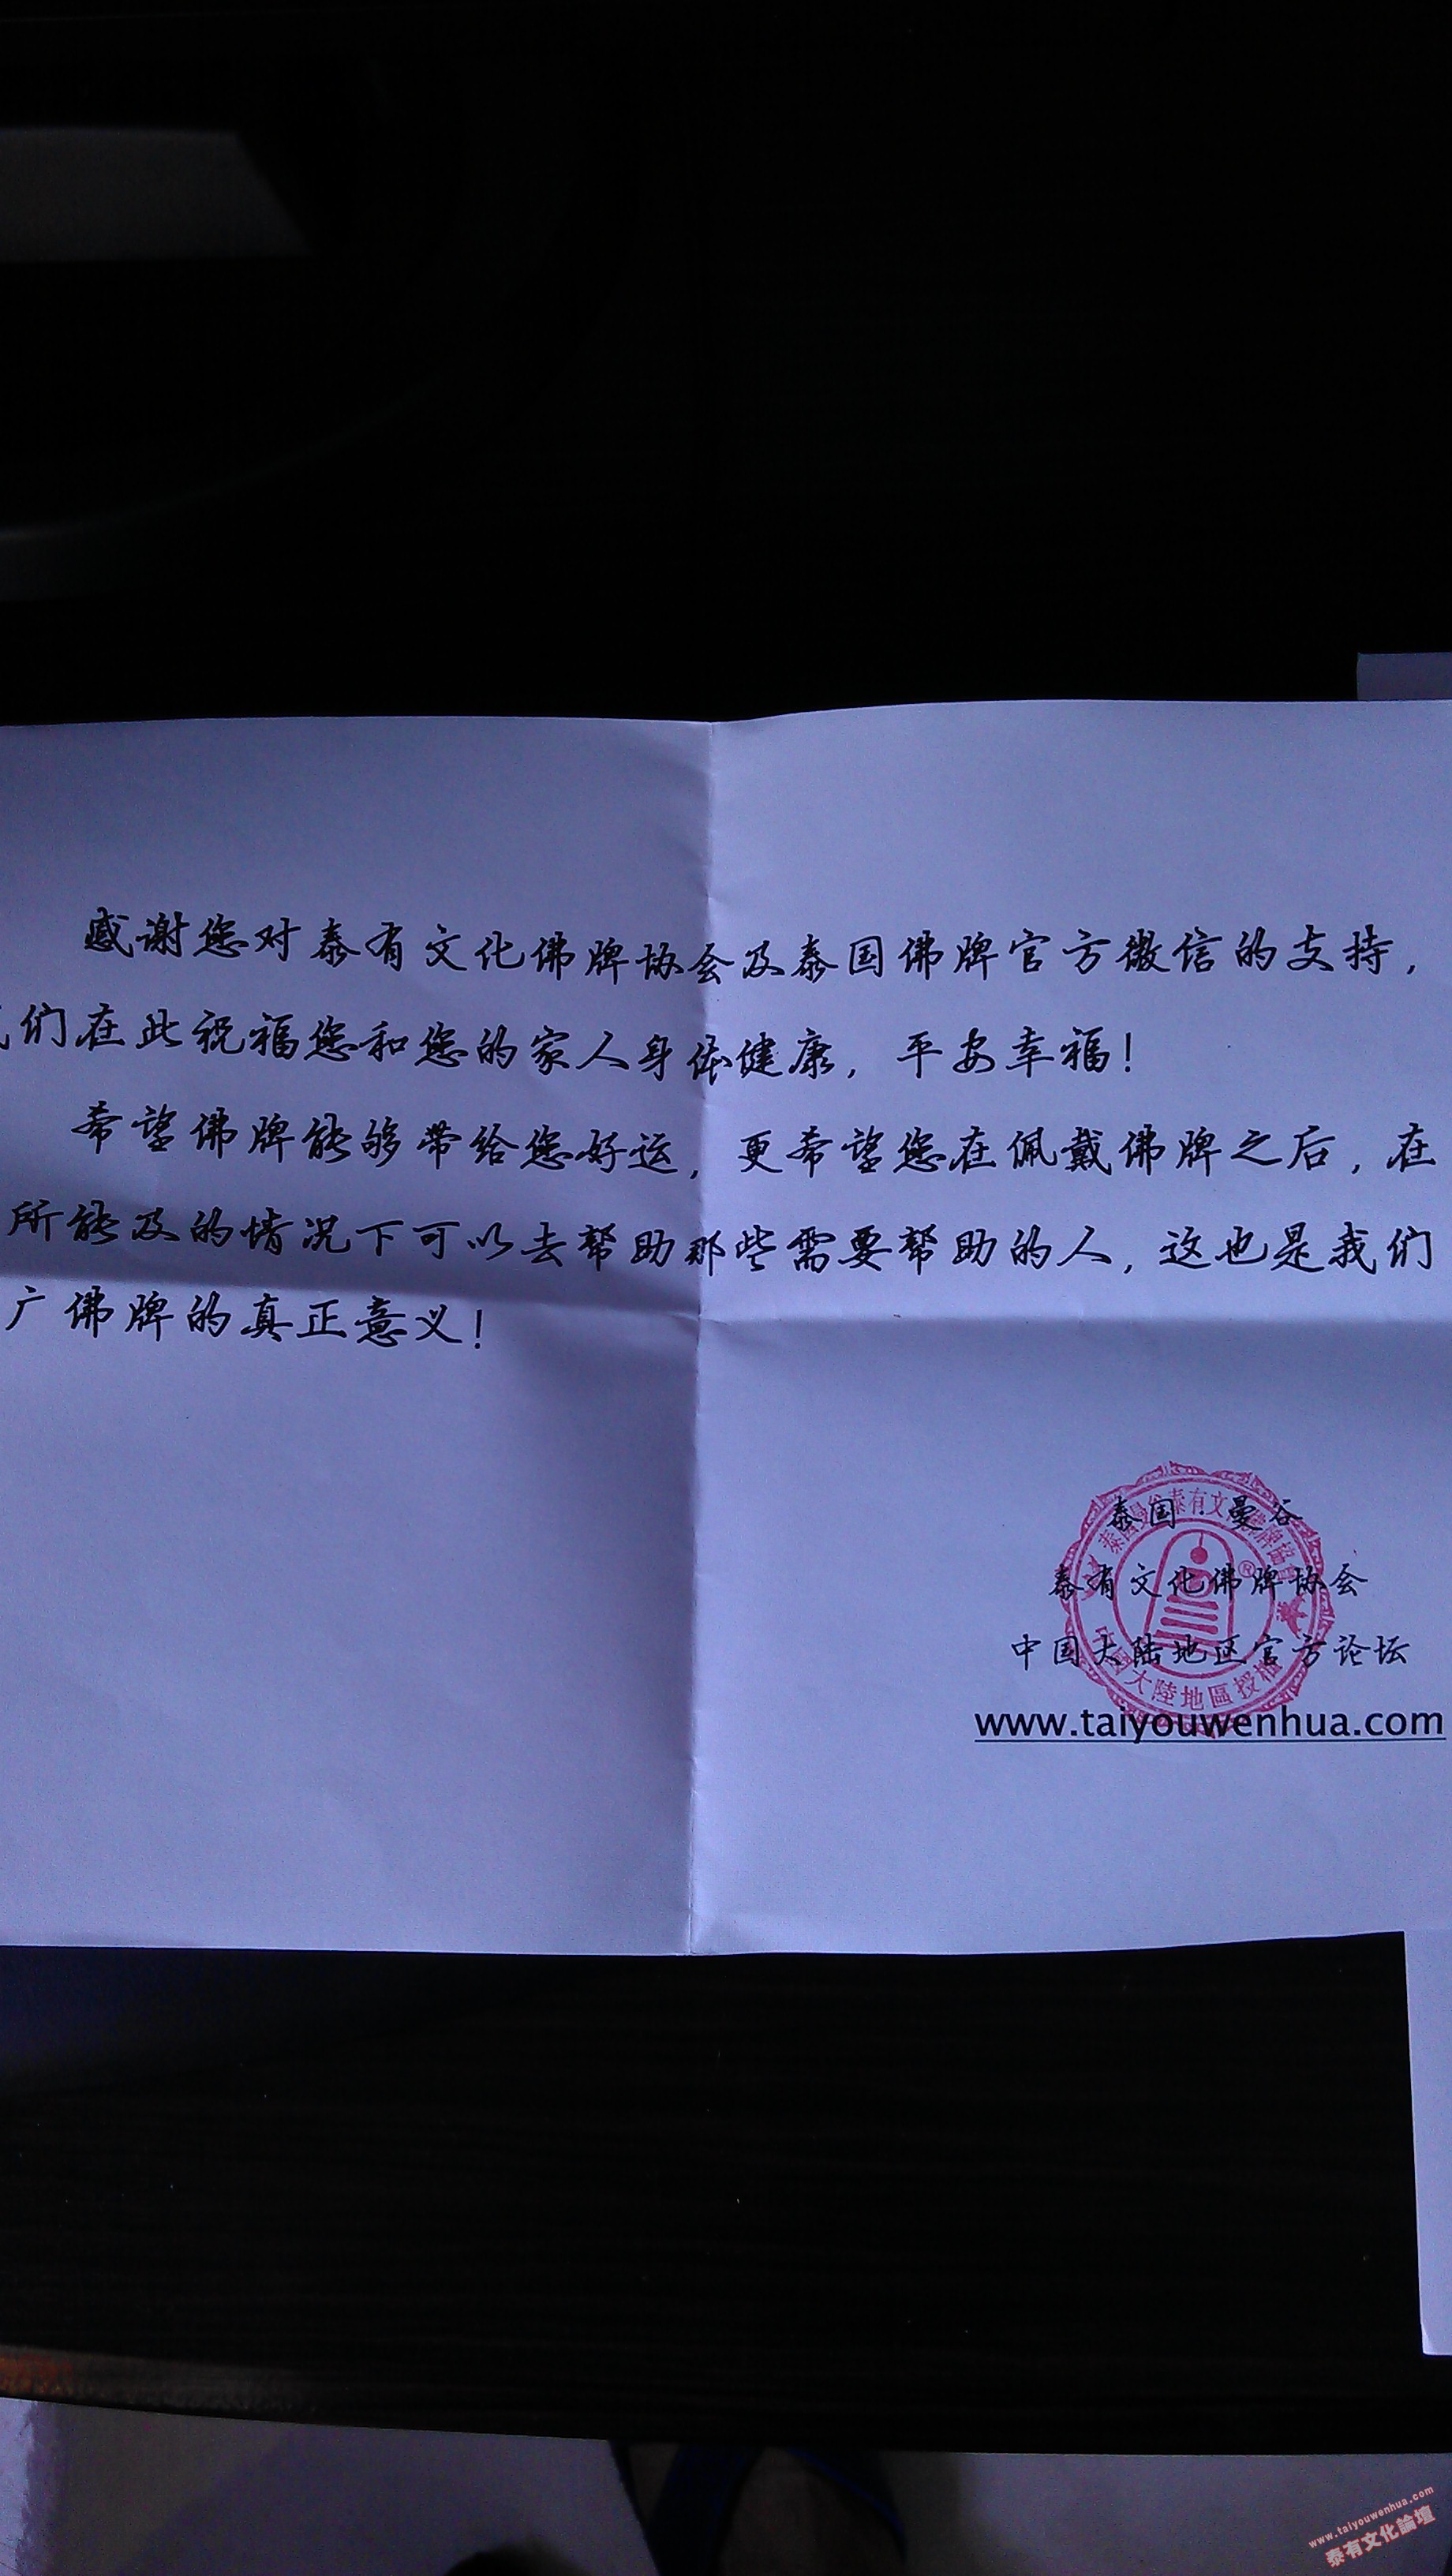 感谢您对泰有文化佛牌协会及泰国佛牌官方微信的支持，
们在此祝福您和您的家人身体健康，平安幸福！
希望佛牌能够带给您好运，更希望您在佩戴佛牌之后，在
所能及的情况下可以去帮助那些需要帮助的人，这也是我们
广佛牌的真正意义！
泰国·曼谷
泰有文化佛牌协会
中国大陆地区官方论坛
www.taiyouwenhua.com
大陸地區授權
www.taiyouwenhua.com
泰有文化論壇